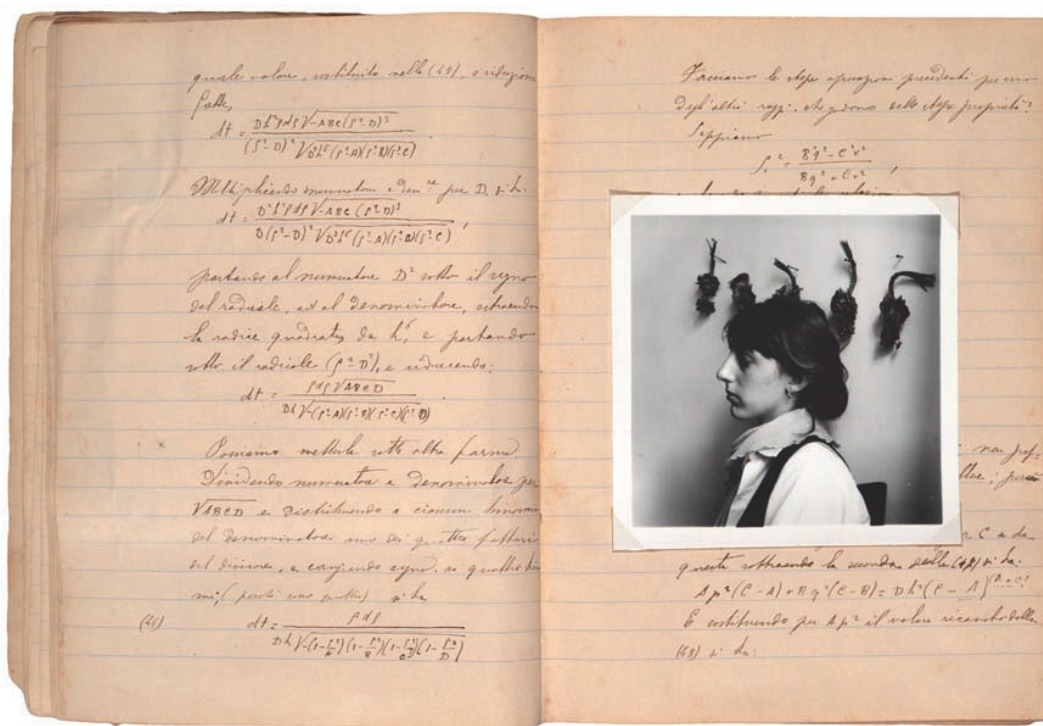 quale valore, sostituito nella (43), e riduzioni
fatte,
dt = Dh²ρdρ√-ABC(ρ²-D)³ / (ρ²-D)²√D²h⁶(ρ²-A)(ρ²-B)(ρ²-C)
Moltiplicando numeratore e den.re per D, si ha:
dt = D²h²ρdρ√-ABC(ρ²-D)³ / D(ρ²-D)²√D²h⁶(ρ²-A)(ρ²-B)(ρ²-C) ,
portando al numeratore D² sotto il segno
del radicale, ed al denominatore, estraendo
la radice quadrata da h⁶, e portando
sotto il radicale (ρ²-D), e riducendo:
dt = ρdρ√ABCD / Dh√-(ρ²-A)(ρ²-B)(ρ²-C)(ρ²-D)
Possiamo metterla sotto altra forma.
Dividendo numeratore e denominatore per
√ABCD e distribuendo a ciascun binomio
del denominatore uno dei quattro fattori
del divisore, e cangiando segno ai quattro
(perchè sono quattro) si ha
dt = ρdρ / Dh√-(1-ρ²/A)(1-ρ²/B)(1-ρ²/C)(1-ρ²/D)
Facciamo le stesse operazioni precedenti per uno
degli altri raggi, che godono delle stesse proprietà.
Sappiamo
B²q² - C²r² / Bq² + Cr² ,
non
però
C e da
questa sottraendo la seconda delle si ha:
Ap²(C-A) + Bq²(C-B) = Dh²(C-
E sostituendo per Ap² il valore ricavato dalla
(43) si ha: